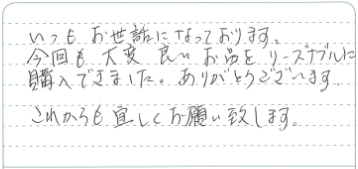 いつも お世話になっております。
今回も 大変 良い お品を リーズナブルに
購入できました。ありがとうございます
これからも 宜しく お願い致します。